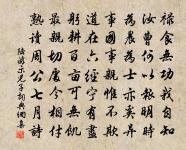 祿食無功我自知
汝曹何以報明時
為農為士亦奚異
事國事親惟不欺
道在六經寧有盡
躬耕百畝可無飢
最親切處今相付
熟讀周公七月詩
陸游示兒子